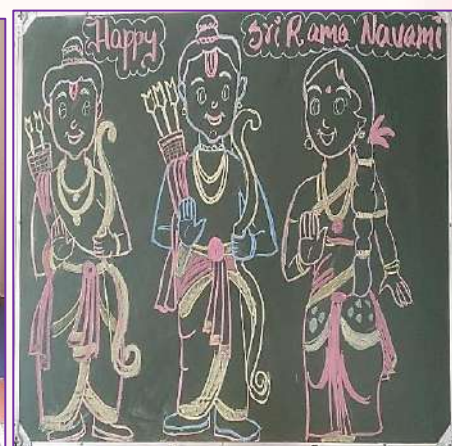 Happy Sri Rama Navami